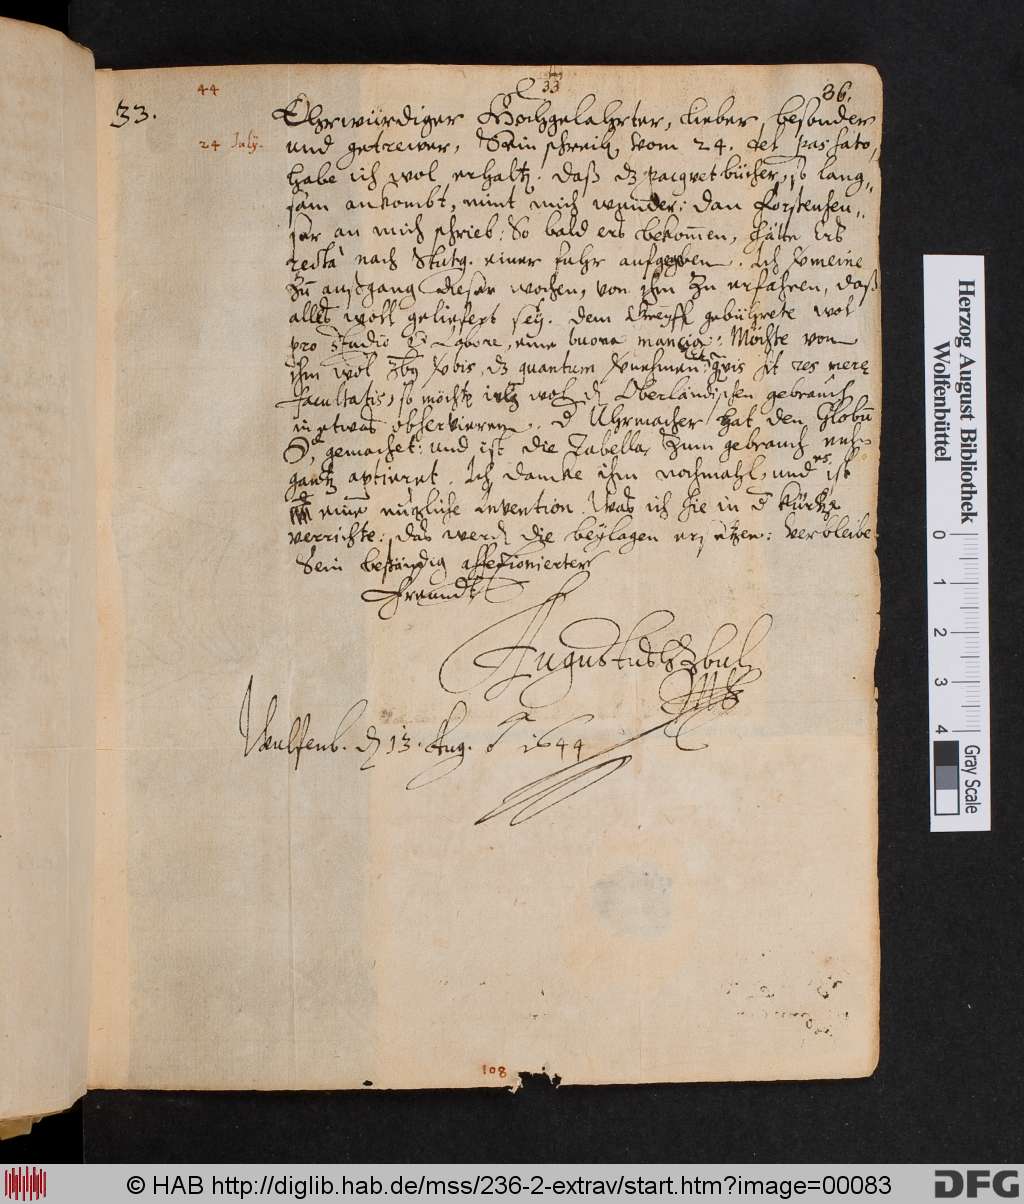 44
33
36.
33.
Ehrwürdiger Hochgelahrter, lieber, besonder
24 July.
und getrewer, Sein schreib vom 24. del passato,
habe ich wol erhaltz. daß dz pacquet bücher, so lang„
sam ankombt, nimt mich wunder: dan Forstenheu„
ser an mich schrieb: So bald ers bekommen, hätte Ers
recta nach Stutg. einer fuhr aufgegeben. Ich vermeine
zu außgang dieser wochen, von ihm zu erfahren, daß
alles woll geliefert sey. dem gebührete wol
pro studio & labore, eine buona mancia: Möchte von
ihm wol dz quantum vernehmen: sit res meræ
facultatis, so möchte ich wol d Oberländischen gebrauch
in etwas observieren. d Uhrmacher hat den Globū
gemacht: und ist die Tabella, zum gebrauch
gantz aptieret. Ich dancke ihm nochmahl, und es ist
eine nüzliche invention. Was ich hie in d kürtze
verrichte: das werd die beylagen ersetzen: verbleibe
Sein beständig affectionierter
Freundt
Augustus HzBuL
Wulfenb. d 13. Aug. 1644
108
Herzog August Bibliothek
Wolfenbüttel
0 1 2 3 4
Gray Scale
© HAB http://diglib.hab.de/mss/236-2-extrav/start.htm?image=00083
DFG